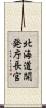 北海道開発庁長官